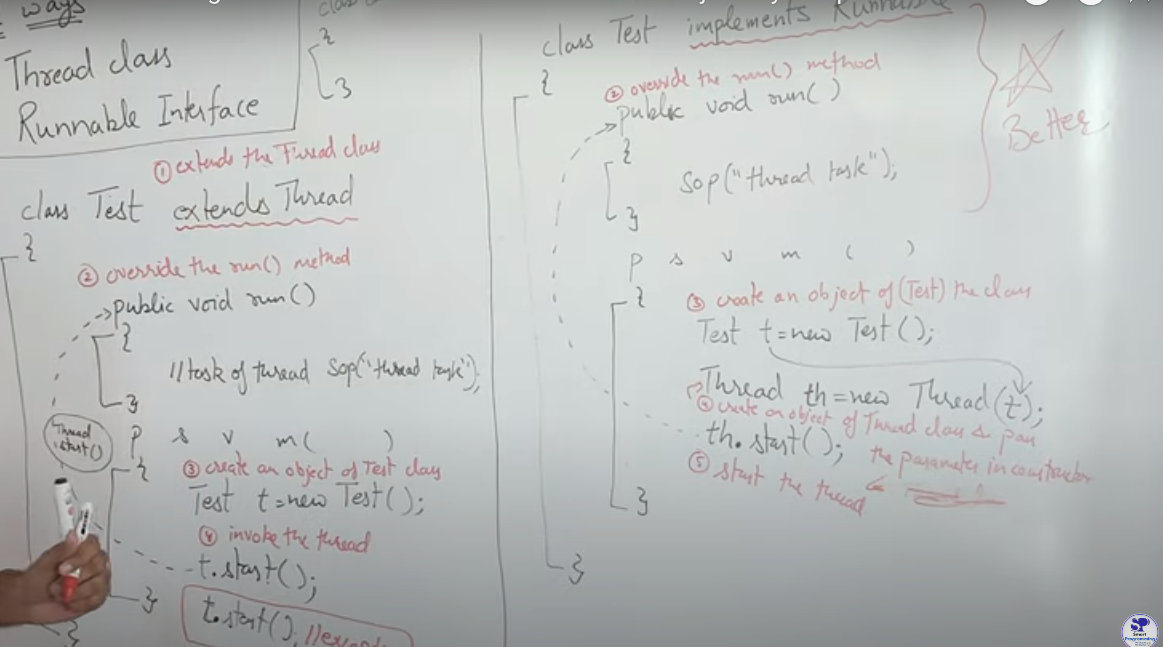 ways
Thread class
Runnable Interface
class
{
}
① extends the Thread class
class Test extends Thread
{
② override the run() method
public void run()
{
//task of thread Sop("thread task");
}
Thread
start()
p s v m( )
{
③ create an object of Test class
Test t=new Test();
④ invoke the thread
t.start();
t.start();
}
}
class Test implements Runnable
{
② override the run() method
public void run()
{
Sop("thread task");
}
p s v m ( )
{
③ create an object of (Test) the class
Test t=new Test();
Thread th=new Thread(t);
④ create an object of Thread class & pass
the parameter in constructor
th.start();
⑤ start the thread
}
}
Better
Smart
Programming